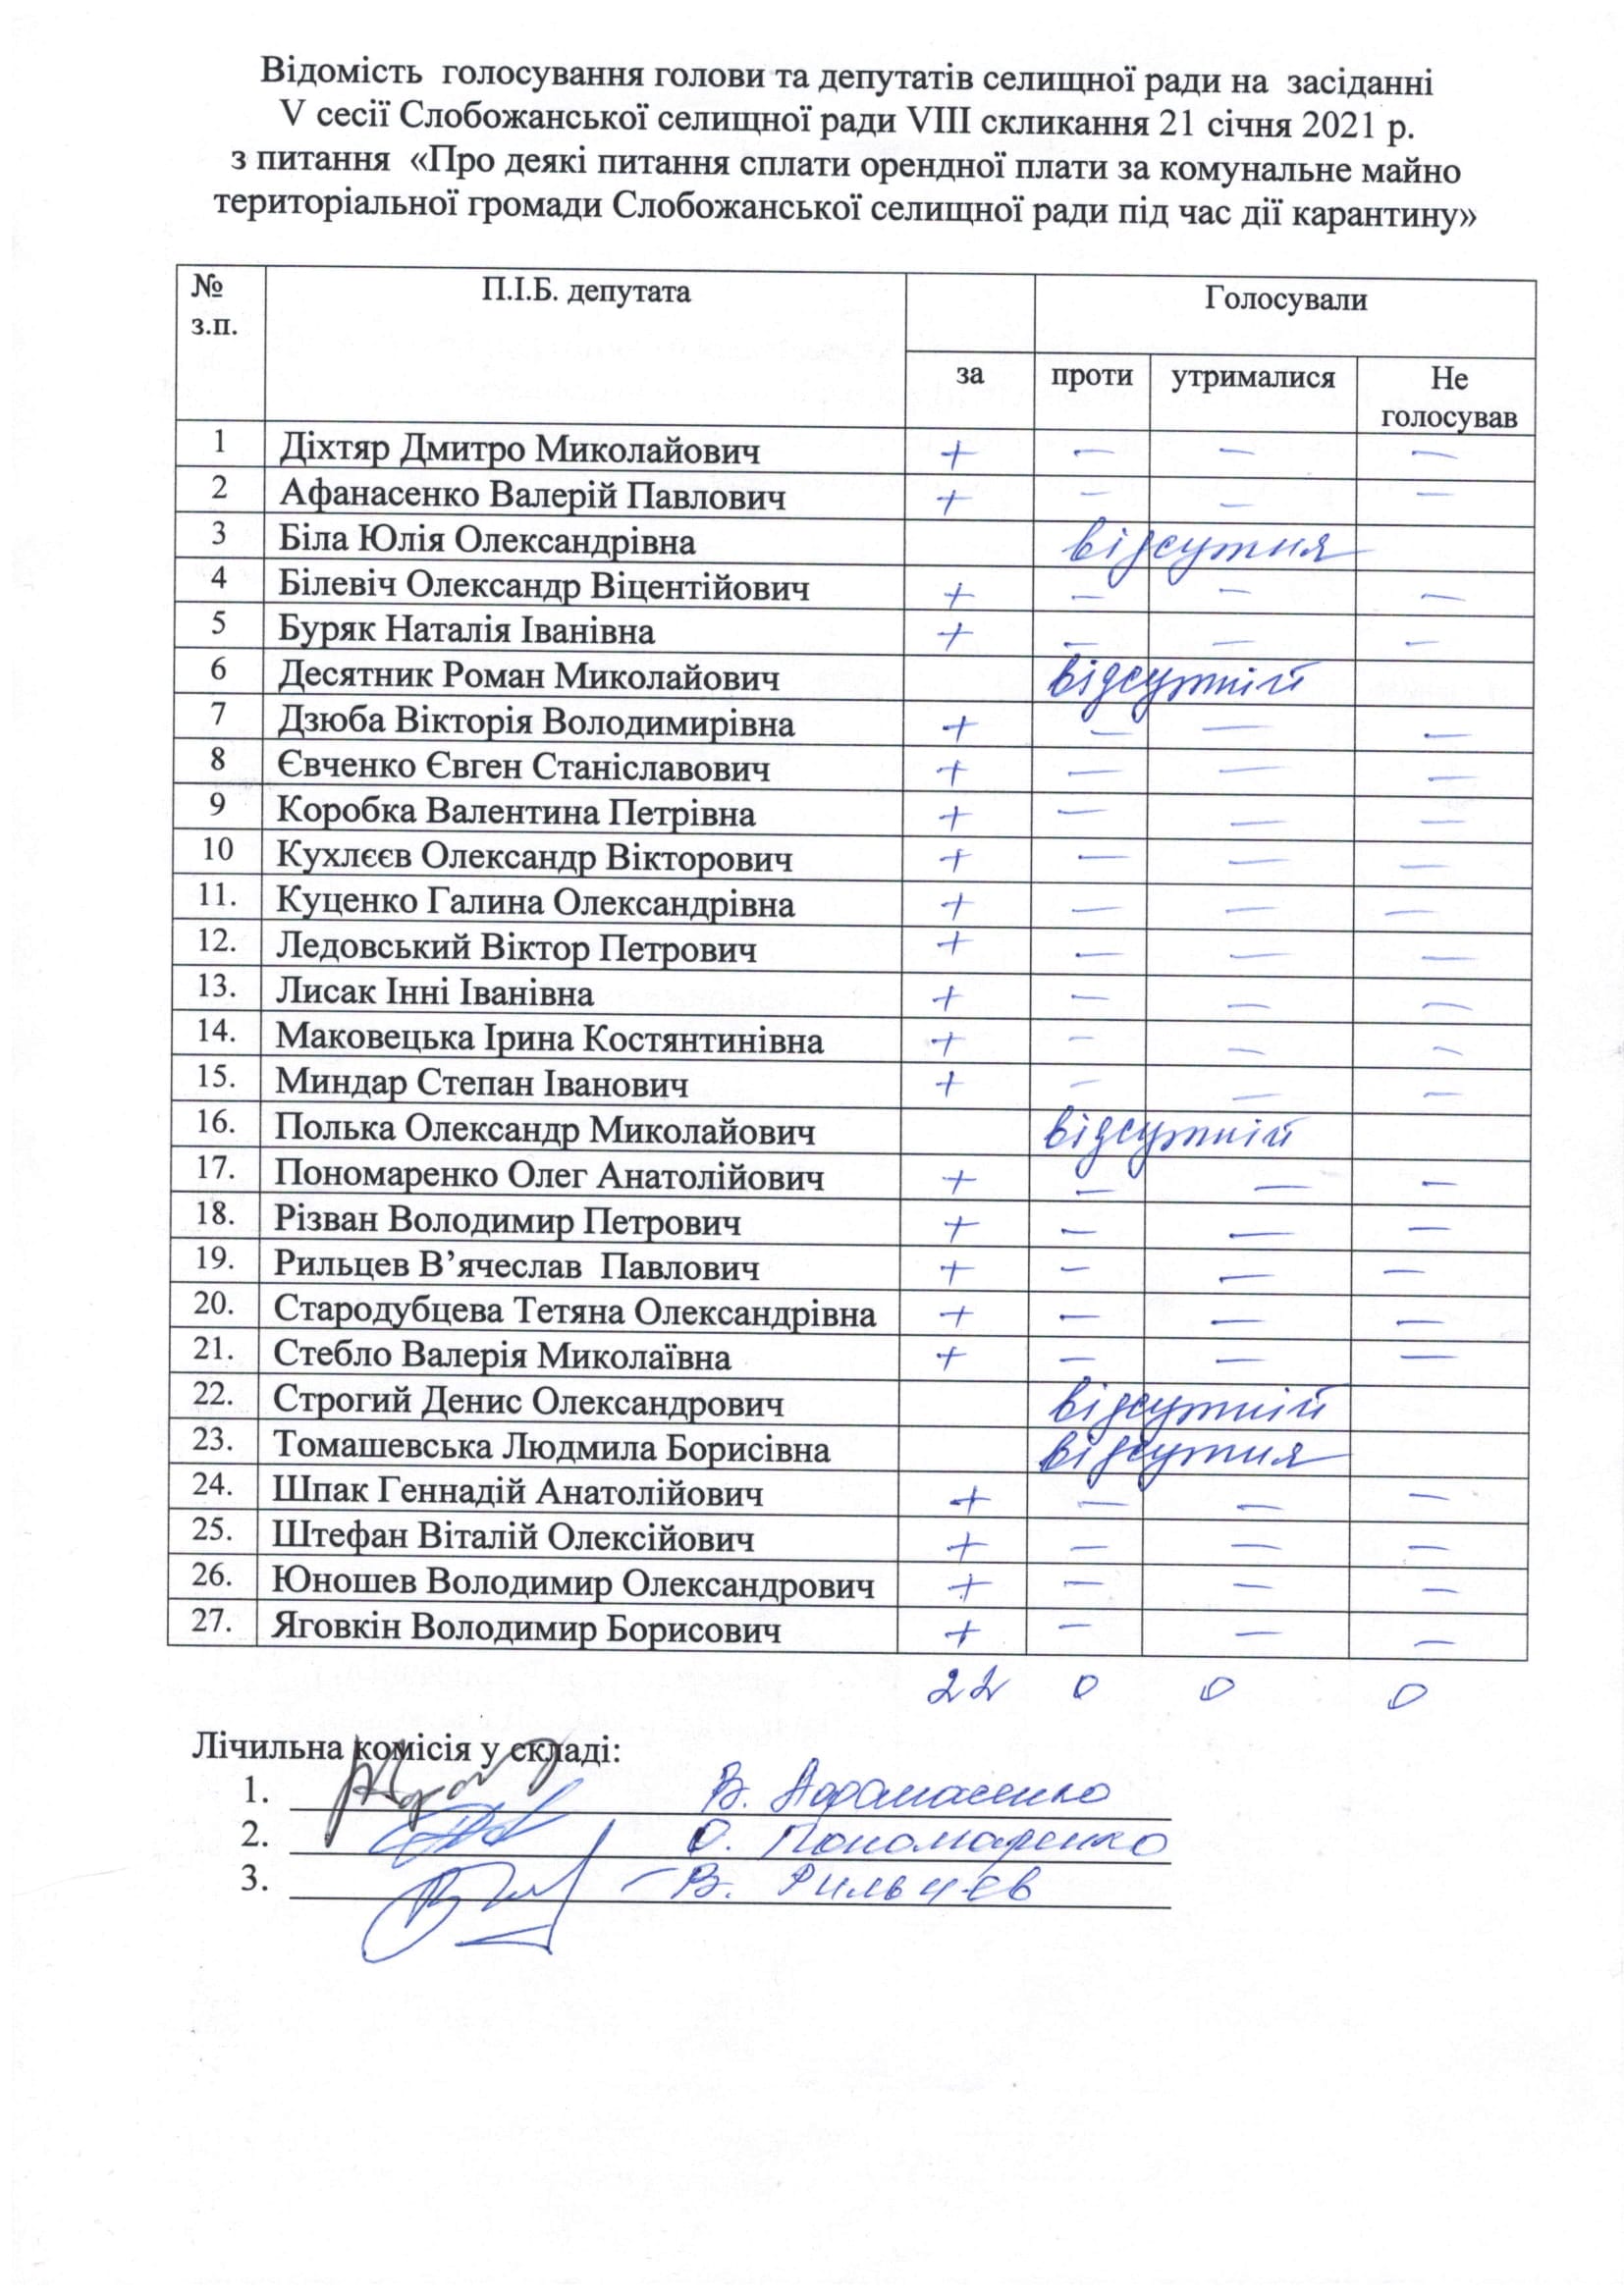 Відомість голосування голови та депутатів селищної ради на засіданні
V сесії Слобожанської селищної ради VIII скликання 21 січня 2021 р.
з питання «Про деякі питання сплати орендної плати за комунальне майно
територіальної громади Слобожанської селищної ради під час дії карантину»
№ з.п. П.І.Б. депутата Голосували
за проти утрималися Не голосував
1 Діхтяр Дмитро Миколайович + – – –
2 Афанасенко Валерій Павлович + – – –
3 Біла Юлія Олександрівна відсутня
4 Білевіч Олександр Віцентійович + – – –
5 Буряк Наталія Іванівна + – – –
6 Десятник Роман Миколайович відсутній
7 Дзюба Вікторія Володимирівна + – – –
8 Євченко Євген Станіславович + – – –
9 Коробка Валентина Петрівна + – – –
10 Кухлєєв Олександр Вікторович + – – –
11. Куценко Галина Олександрівна + – – –
12. Ледовський Віктор Петрович + – – –
13. Лисак Інні Іванівна + – – –
14. Маковецька Ірина Костянтинівна + – – –
15. Миндар Степан Іванович + – – –
16. Полька Олександр Миколайович відсутній
17. Пономаренко Олег Анатолійович + – – –
18. Різван Володимир Петрович + – – –
19. Рильцев В’ячеслав Павлович + – – –
20. Стародубцева Тетяна Олександрівна + – – –
21. Стебло Валерія Миколаївна + – – –
22. Строгий Денис Олександрович відсутній
23. Томашевська Людмила Борисівна відсутня
24. Шпак Геннадій Анатолійович + – – –
25. Штефан Віталій Олексійович + – – –
26. Юношев Володимир Олександрович + – – –
27. Яговкін Володимир Борисович + – – –
22 0 0 0
Лічильна комісія у складі:
1. В. Афанасенко
2. О. Пономаренко
3. В. Рильцев